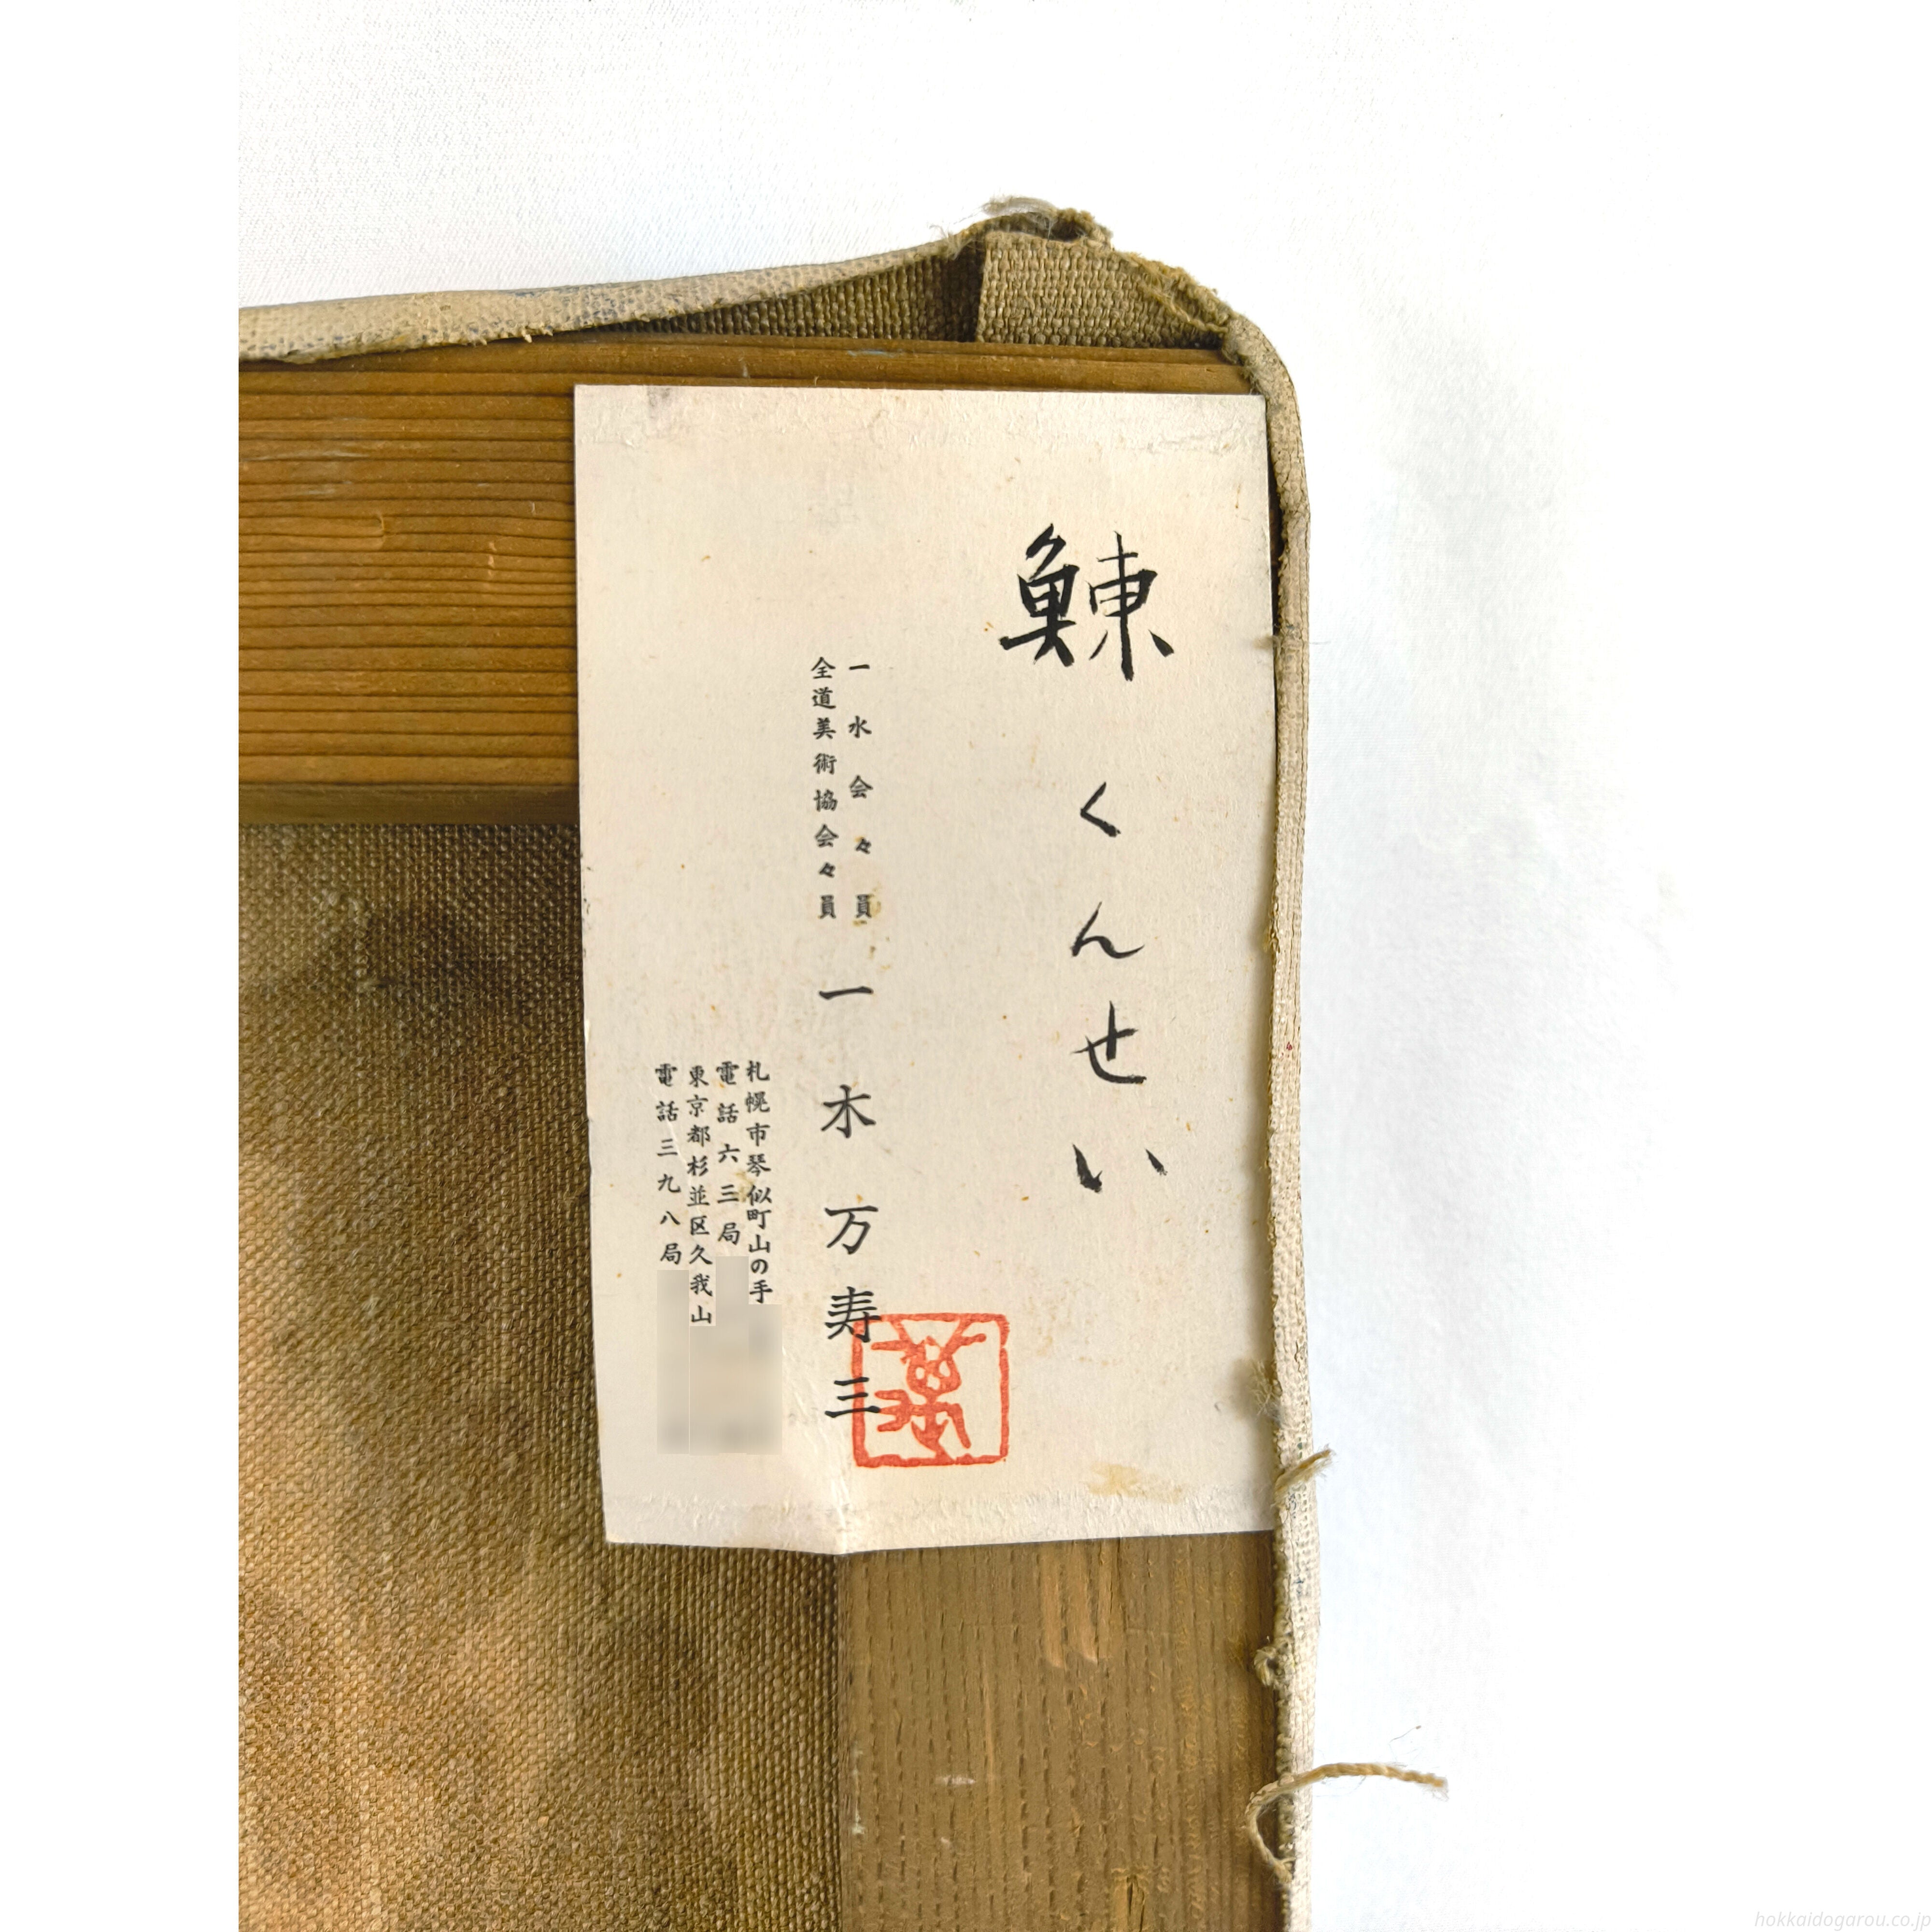 鰊くんせい
一水会々員
全道美術協会々員
一木万寿三
札幌市琴似町山の手
電話六三局
東京都杉並区久我山
電話三九八局
hokkaidogarou.co.jp